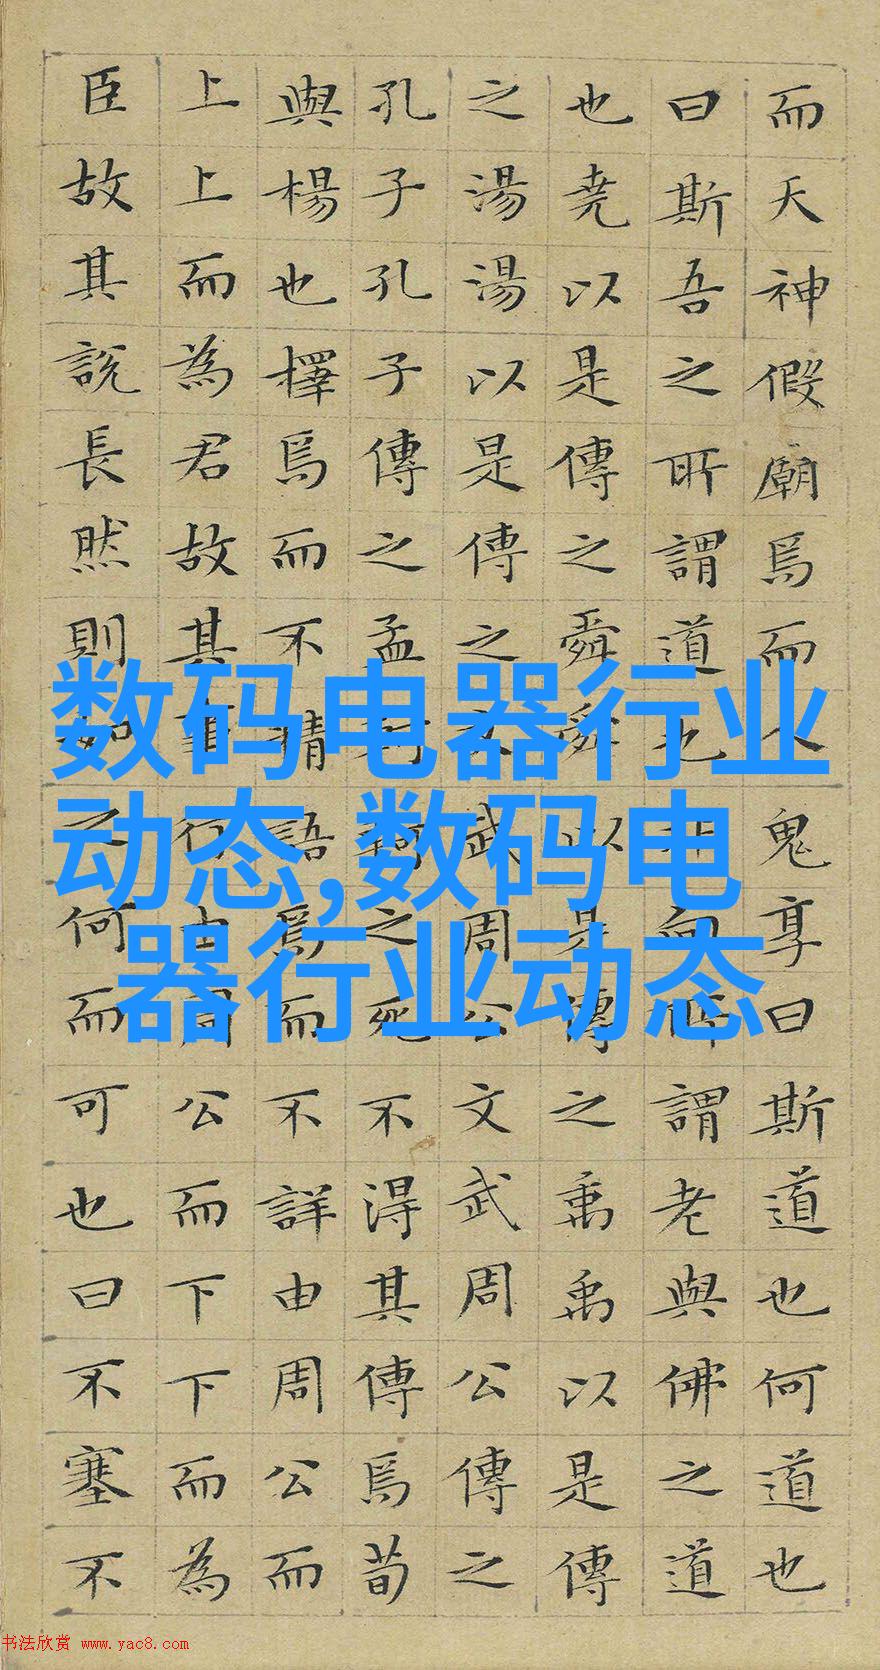 而天神假廟焉而人鬼享曰斯道也何道也
曰斯吾之所謂道也非向所謂老與佛之道
也堯以是傳之舜舜以是傳之禹禹以是傳
之湯湯以是傳之文武周公文武周公傳之
孔子孔子傳之孟軻軻之死不得其傳焉荀
與楊也擇焉而不精語焉而不詳由周公而
上上而為君故其事行由周公而下下而為
臣故其說長然則如之何而可也曰不塞不
数码电器行业
动态,数码电
器行业动态
书法欣赏 www.yac8.com